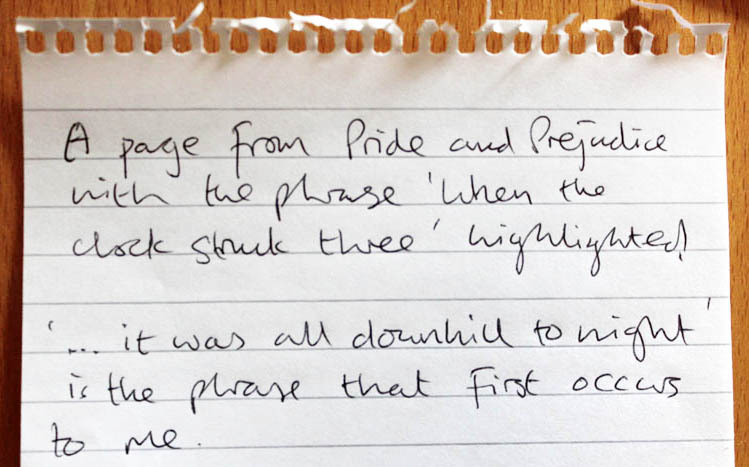 A page from Pride and Prejudice
with the phrase 'When the
clock struck three' highlighted!
'... it was all downhill to night'
is the phrase that first occurs
to me.